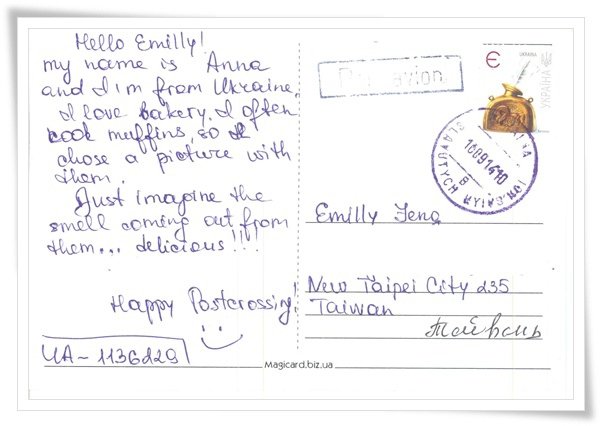 Hello Emilly!
my name is Anna
and I'm from Ukraine.
I love bakery. I often
cook muffins, so I
chose a picture with
them.
Just imagine the
smell coming out from
them... delicious!!!
Happy Postcrossing!
UA-1136229
Par avion
Є
УКРАЇНА
SLAVUTYCH KYIVSKOI
160914-10
В
Emilly Jeng
New Taipei City 235
Taiwan
Тайвань
Magicard.biz.ua